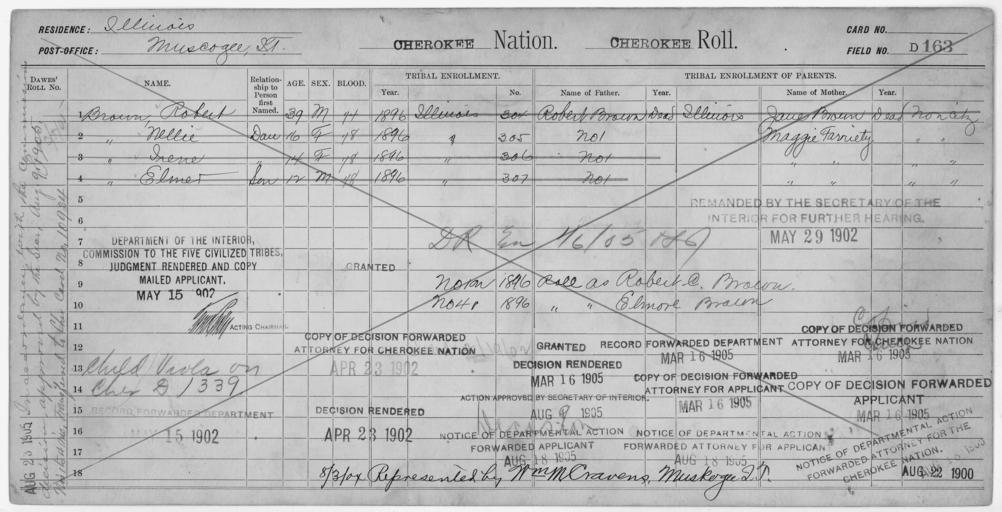 RESIDENCE: Illinois
POST-OFFICE: Muscogee, I.T.
CHEROKEE Nation. CHEROKEE Roll.
CARD NO.
FIELD NO. D 163
DAWES' ROLL NO. NAME. Relationship to Person first Named. AGE. SEX. BLOOD. TRIBAL ENROLLMENT. Year. No. TRIBAL ENROLLMENT OF PARENTS. Name of Father. Year. Name of Mother. Year.
1 Brown, Robert 39 M 1896 Illinois 304 Robert Brown Dead Illinois Jane Brown Dead
2 " Nellie Dau 16 F 1/8 1896 " 305 No 1 Maggie " "
3 " Irene " 14 F 1/8 1896 " 306 No 1 " " " "
4 " Elmer Son 12 M 1/8 1896 " 307 No 1 " " " "
5
6
REMANDED BY THE SECRETARY OF THE
INTERIOR FOR FURTHER HEARING.
MAY 29 1902
7
8
DEPARTMENT OF THE INTERIOR,
COMMISSION TO THE FIVE CIVILIZED TRIBES,
JUDGMENT RENDERED AND COPY
MAILED APPLICANT.
MAY 15 902
ACTING CHAIRMAN
GRANTED
9 No 1 on 1896 Roll as Robert C. Brown.
10 No 4 " 1896 " " Elmore Brown
11
12
13
14
15
16
17
18
Child Viola on
Cher D 1339
RECORD FORWARDED DEPARTMENT
MAY 15 1902
COPY OF DECISION FORWARDED
ATTORNEY FOR CHEROKEE NATION
APR 23 1902
DECISION RENDERED
APR 23 1902
GRANTED
DECISION RENDERED
MAR 16 1905
ACTION APPROVED BY SECRETARY OF INTERIOR.
AUG 9 1905
NOTICE OF DEPARTMENTAL ACTION
FORWARDED APPLICANT
AUG 18 1905
RECORD FORWARDED DEPARTMENT
MAR 16 1905
COPY OF DECISION FORWARDED
ATTORNEY FOR APPLICANT
MAR 16 1905
NOTICE OF DEPARTMENTAL ACTION
FORWARDED ATTORNEY FOR APPLICANT
AUG 18 1905
COPY OF DECISION FORWARDED
ATTORNEY FOR CHEROKEE NATION
MAR 16 1905
COPY OF DECISION FORWARDED
APPLICANT
MAR 16 1905
NOTICE OF DEPARTMENTAL ACTION
FORWARDED ATTORNEY FOR THE
CHEROKEE NATION.
AUG 22 1900
8/3/04 Represented by Wm McCravens, Muskogee I.T.
AUG 23 1905 In accordance with the
decision approved by the Secr. Aug. 9, 1905